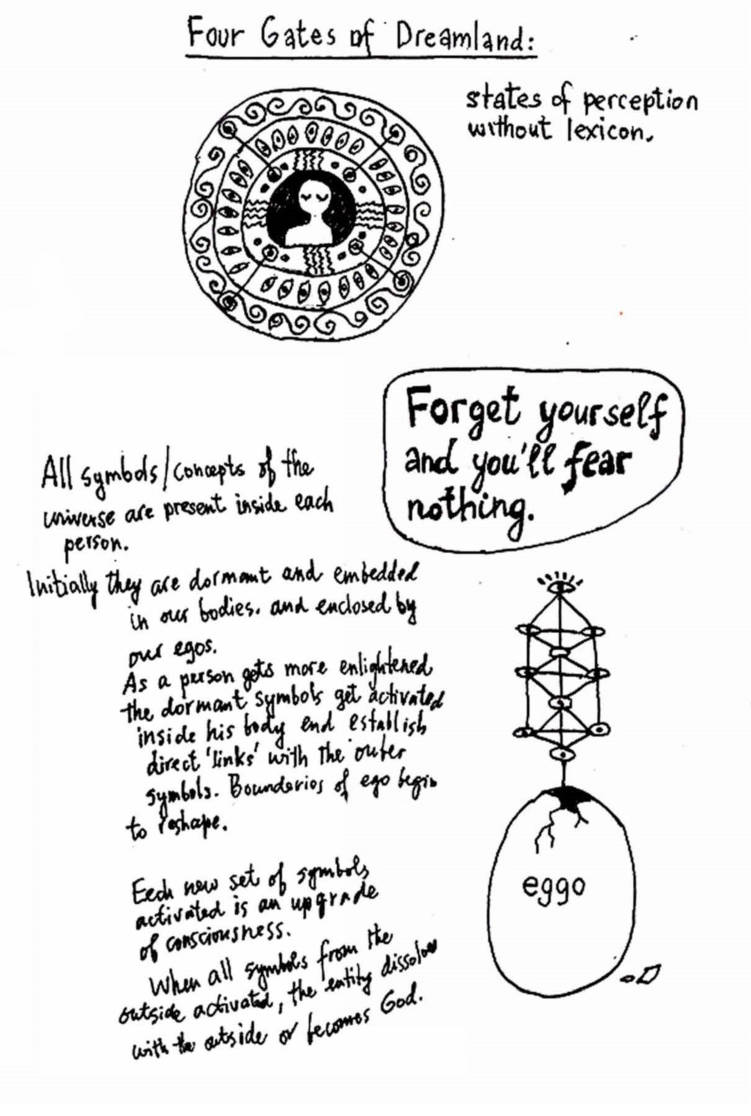 Four Gates of Dreamland:
states of perception
without lexicon.
Forget yourself
and you'll fear
nothing.
All symbols/concepts of the
universe are present inside each
person.
Initially they are dormant and embedded
in our bodies. and enclosed by
our egos.
As a person gets more enlightened
the dormant symbols get activated
inside his body end establish
direct 'links' with the outer
symbols. Boundaries of ego begin
to reshape.
Eech new set of symbols
activated is an upgrade
of consciousness.
When all symbols from the
outside activated, the entity dissolves
with the outside or becomes God.
eggo